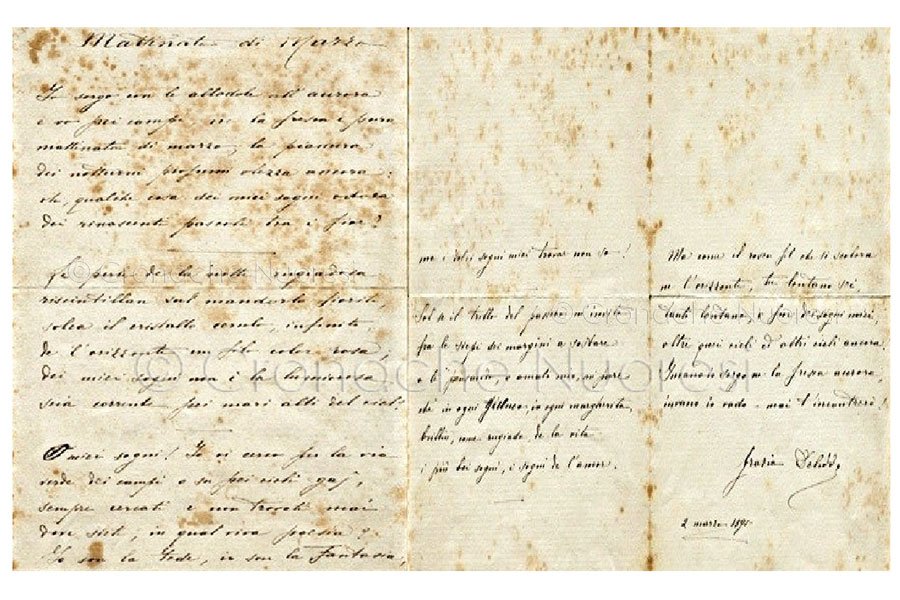 Mattinata di Marzo
Io sorgo con le allodole all'aurora
e vo pei campi ne la fresca e pura
mattinata di marzo; la pianura
dei notturni profumi olezza ancora:
oh, qualche cosa dei miei sogni
dei rinascenti pascoli tra i fior?
Le perle de la notte rugiadosa
riscintillan sul mandorlo fiorito,
solca il cristallo cerulo, infinito,
de l'orizzonte un filo color rosa,
dei miei sogni non è la luminosa
scia corrente pei mari alti del ciel?
O miei sogni! Io vi cerco per la via
verde dei campi e su pei cieli gai,
sempre cercati e non trovati mai
dove siete, in qual viva poesia?
Io son la Fede, io son la Fantasia,
ma i dolci sogni miei trovar non so!
Sol il trillo del passero m'invita
fra le siepi dei margini a sostare
e a te pensando, o amato mio, mi pare
che in ogni in ogni margherita
brilli, come rugiada de la vita
i più bei sogni, i sogni de l'amore.
Ma come il roseo fil che si scolora
a l'orizzonte, tu lontano sei,
tanto lontano e fuor dei sogni miei,
oltre quei cieli ed altri cieli ancora!
Invano io sorgo ne la fresca aurora,
invano io vado - mai t'incontrerò!
Grazia Deledda
2 marzo
© Cronache Nuoresi